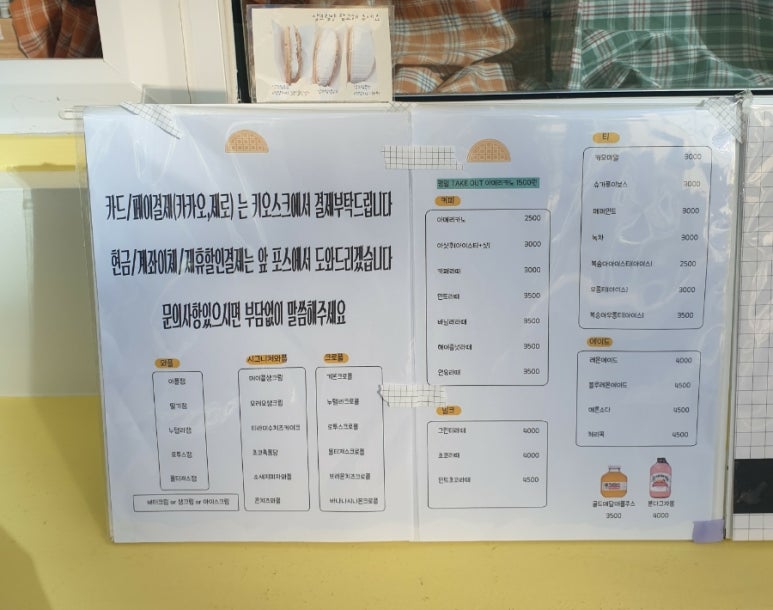 카드/페이결제(카카오,제로) 는 키오스크에서 결제부탁드립니다
현금/계좌이체/제휴할인결제는 앞 포스에서 도와드리겠습니다
문의사항있으시면 부담없이 말씀해주세요
와플
애플잼
딸기잼
누텔라잼
로투스잼
몰티져스잼
버터크림 or 생크림 or 아이스크림
시그니처와플
아이올생크림
오레오생크림
티라미수치즈케이크
초코폭퐁당
소세지피자와플
콘치즈와플
크로플
기본크로플
누텔라크로플
로투스크로플
몰티져스크로플
브라운치즈크로플
바나나시나몬크로플
평일 TAKE OUT 아메리카노 1500원
커피
아메리카노 2500
아샷추(아이스티+샷) 3000
카페라떼 3000
민트라떼 3500
바닐라라떼 3500
헤이즐넛라떼 3500
연유라떼 3500
밀크
그린티라떼 4000
초코라떼 4000
민트초코라떼 4500
티
캐모마일 3000
슈가롤이보스 3000
페퍼민트 3000
녹차 3000
복숭아아이스티(아이스) 2500
오룡티(아이스) 3000
복숭아우롱티(아이스) 3500
에이드
레몬에이드 4000
블루레몬에이드 4500
메론소다 4500
체리콕 4500
골드메달애플주스
3500
분다버그자몽
4000